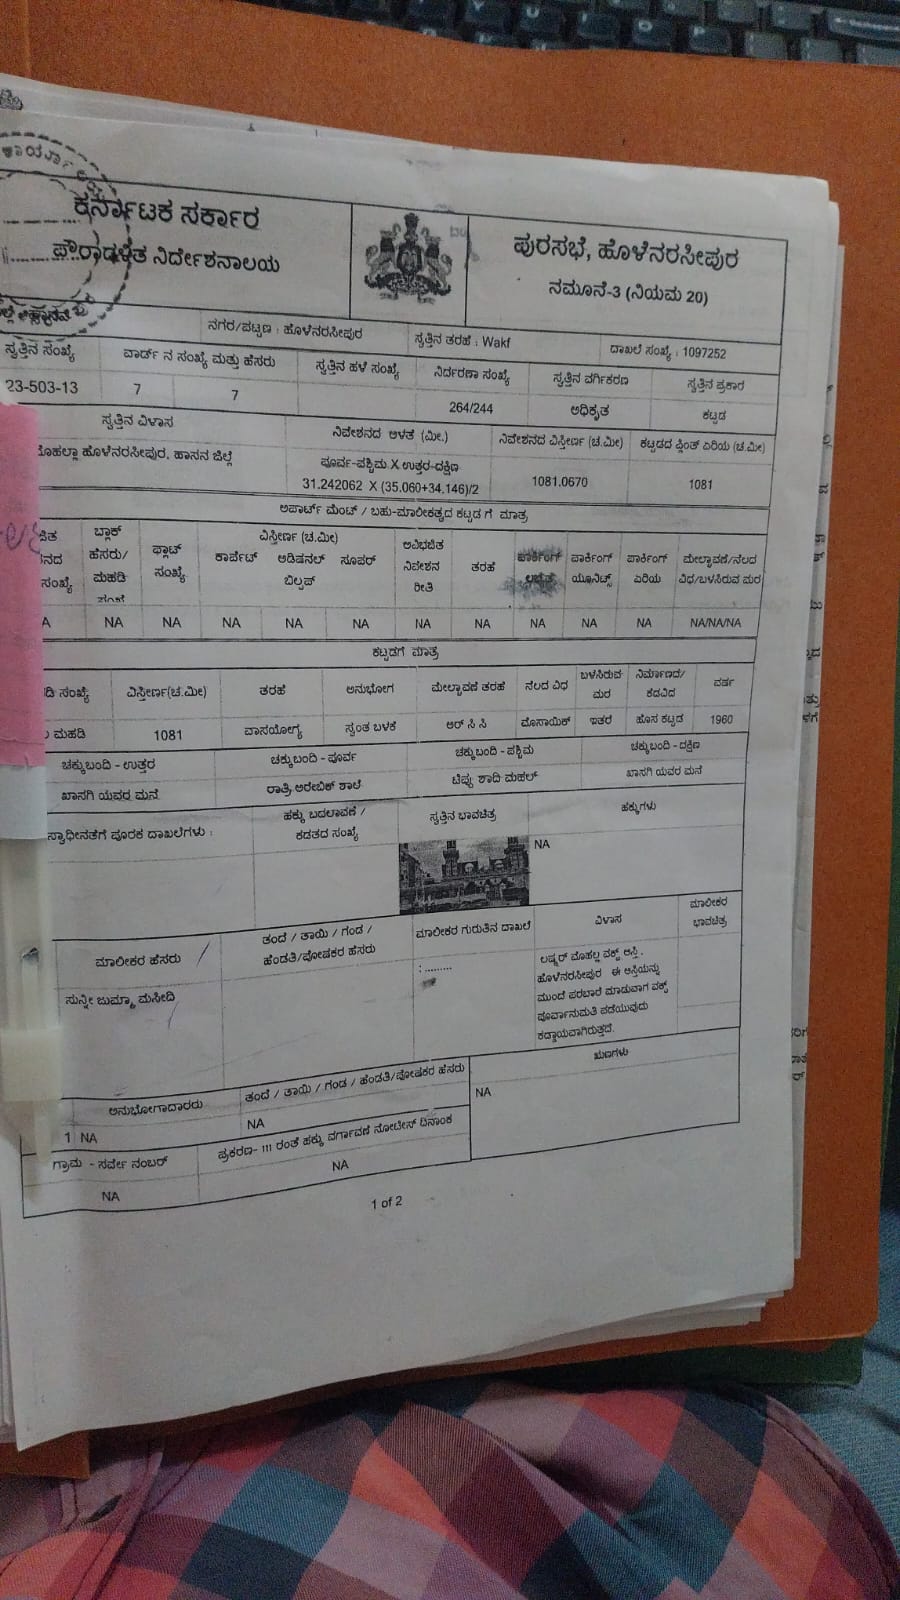 ಕರ್ನಾಟಕ ಸರ್ಕಾರ
ಪೌರಾಡಳಿತ ನಿರ್ದೇಶನಾಲಯ
ಪುರಸಭೆ, ಹೊಳೆನರಸೀಪುರ
ನಮೂನೆ-3 (ನಿಯಮ 20)
ನಗರ/ಪಟ್ಟಣ : ಹೊಳೆನರಸೀಪುರ ಸ್ವತ್ತಿನ ತರಹೆ : Wakf ದಾಖಲೆ ಸಂಖ್ಯೆ : 1097252
ಸ್ವತ್ತಿನ ಸಂಖ್ಯೆ ವಾರ್ಡ್ ನ ಸಂಖ್ಯೆ ಮತ್ತು ಹೆಸರು ಸ್ವತ್ತಿನ ಹಳೆ ಸಂಖ್ಯೆ ನಿರ್ದರಣಾ ಸಂಖ್ಯೆ ಸ್ವತ್ತಿನ ವರ್ಗಿಕರಣ ಸ್ವತ್ತಿನ ಪ್ರಕಾರ
23-503-13 7 7 264/244 ಅಧಿಕೃತ ಕಟ್ಟಡ
ಸ್ವತ್ತಿನ ವಿಳಾಸ ನಿವೇಶನದ ಅಳತೆ (ಮೀ.) ನಿವೇಶನದ ವಿಸ್ತೀರ್ಣ (ಚ.ಮೀ) ಕಟ್ಟಡದ ಪ್ಲಿಂತ್ ಏರಿಯ (ಚ.ಮೀ)
ಹೊಳೆನರಸೀಪುರ, ಹಾಸನ ಜಿಲ್ಲೆ ಪೂರ್ವ-ಪಶ್ಚಿಮ X ಉತ್ತರ-ದಕ್ಷಿಣ
31.242062 X (35.060+34.146)/2 1081.0670 1081
ಅಪಾರ್ಟ್ ಮೆಂಟ್ / ಬಹು-ಮಾಲೀಕತ್ವದ ಕಟ್ಟಡ ಗೆ ಮಾತ್ರ
ಬ್ಲಾಕ್ ಹೆಸರು/ ಮಹಡಿ ಫ್ಲಾಟ್ ಸಂಖ್ಯೆ ವಿಸ್ತೀರ್ಣ (ಚ.ಮೀ)
ಕಾರ್ಪೆಟ್ ಅಡಿಷನಲ್ ಬಿಲ್ಟಪ್ ಸೂಪರ್ ಅವಿಭಜಿತ ನಿವೇಶನ ರೀತಿ ತರಹೆ ಪಾರ್ಕಿಂಗ್ ಪಾರ್ಕಿಂಗ್ ಯೂನಿಟ್ಸ್ ಪಾರ್ಕಿಂಗ್ ಏರಿಯ ಮೇಲ್ಛಾವಣಿ/ನೆಲದ ವಿಧ/ಬಳಸಿರುವ ಮರ
NA NA NA NA NA NA NA NA NA NA NA/NA/NA
ಕಟ್ಟಡಗೆ ಮಾತ್ರ
ಸಂಖ್ಯೆ ವಿಸ್ತೀರ್ಣ(ಚ.ಮೀ) ತರಹೆ ಅನುಭೋಗ ಮೇಲ್ಛಾವಣಿ ತರಹೆ ನೆಲದ ವಿಧ ಬಳಸಿರುವ ಮರ ನಿರ್ಮಾಣದ/ಕೆಡವಿದ ವರ್ಷ
ಮಹಡಿ 1081 ವಾಸಯೋಗ್ಯ ಸ್ವಂತ ಬಳಕೆ ಆರ್ ಸಿ ಸಿ ಮೊಸಾಯಿಕ್ ಇತರೆ ಹೊಸ ಕಟ್ಟಡ 1960
ಚಕ್ಕುಬಂದಿ - ಉತ್ತರ ಚಕ್ಕುಬಂದಿ - ಪೂರ್ವ ಚಕ್ಕುಬಂದಿ - ಪಶ್ಚಿಮ ಚಕ್ಕುಬಂದಿ - ದಕ್ಷಿಣ
ಖಾಸಗಿ ಯವರ ಮನೆ ರಾತ್ರಿ ಅರೇಬಿಕ್ ಶಾಲೆ ಟಿಪ್ಪು ಶಾದಿ ಮಹಲ್ ಖಾಸಗಿ ಯವರ ಮನೆ
ಸ್ವಾಧೀನತೆಗೆ ಪೂರಕ ದಾಖಲೆಗಳು : ಹಕ್ಕು ಬದಲಾವಣೆ / ಕಡತದ ಸಂಖ್ಯೆ ಸ್ವತ್ತಿನ ಭಾವಚಿತ್ರ ಹಕ್ಕುಗಳು
NA
ಮಾಲೀಕರ ಹೆಸರು ತಂದೆ / ತಾಯಿ / ಗಂಡ / ಹೆಂಡತಿ/ಪೋಷಕರ ಹೆಸರು ಮಾಲೀಕರ ಗುರುತಿನ ದಾಖಲೆ ವಿಳಾಸ ಮಾಲೀಕರ ಭಾವಚಿತ್ರ
ಸುನ್ನೀ ಜುಮ್ಮಾ ಮಸೀದಿ : ......... ಲಷ್ಕರ್ ಮೊಹಲ್ಲ ವಕ್ಫ್ ಆಸ್ತಿ .
ಹೊಳೆನರಸೀಪುರ ಈ ಆಸ್ತಿಯನ್ನು
ಮುಂದೆ ಪರಬಾರೆ ಮಾಡುವಾಗ ವಕ್ಫ್
ಪೂರ್ವಾನುಮತಿ ಪಡೆಯುವುದು
ಕಡ್ಡಾಯವಾಗಿರುತ್ತದೆ.
ಅನುಭೋಗದಾರರು ತಂದೆ / ತಾಯಿ / ಗಂಡ / ಹೆಂಡತಿ/ಪೋಷಕರ ಹೆಸರು ಋಣಗಳು
1 NA NA NA
ಗ್ರಾಮ - ಸರ್ವೇ ನಂಬರ್ ಪ್ರಕರಣ- 111 ರಂತೆ ಹಕ್ಕು ವರ್ಗಾವಣೆ ನೋಟೀಸ್ ದಿನಾಂಕ
NA NA
1 of 2